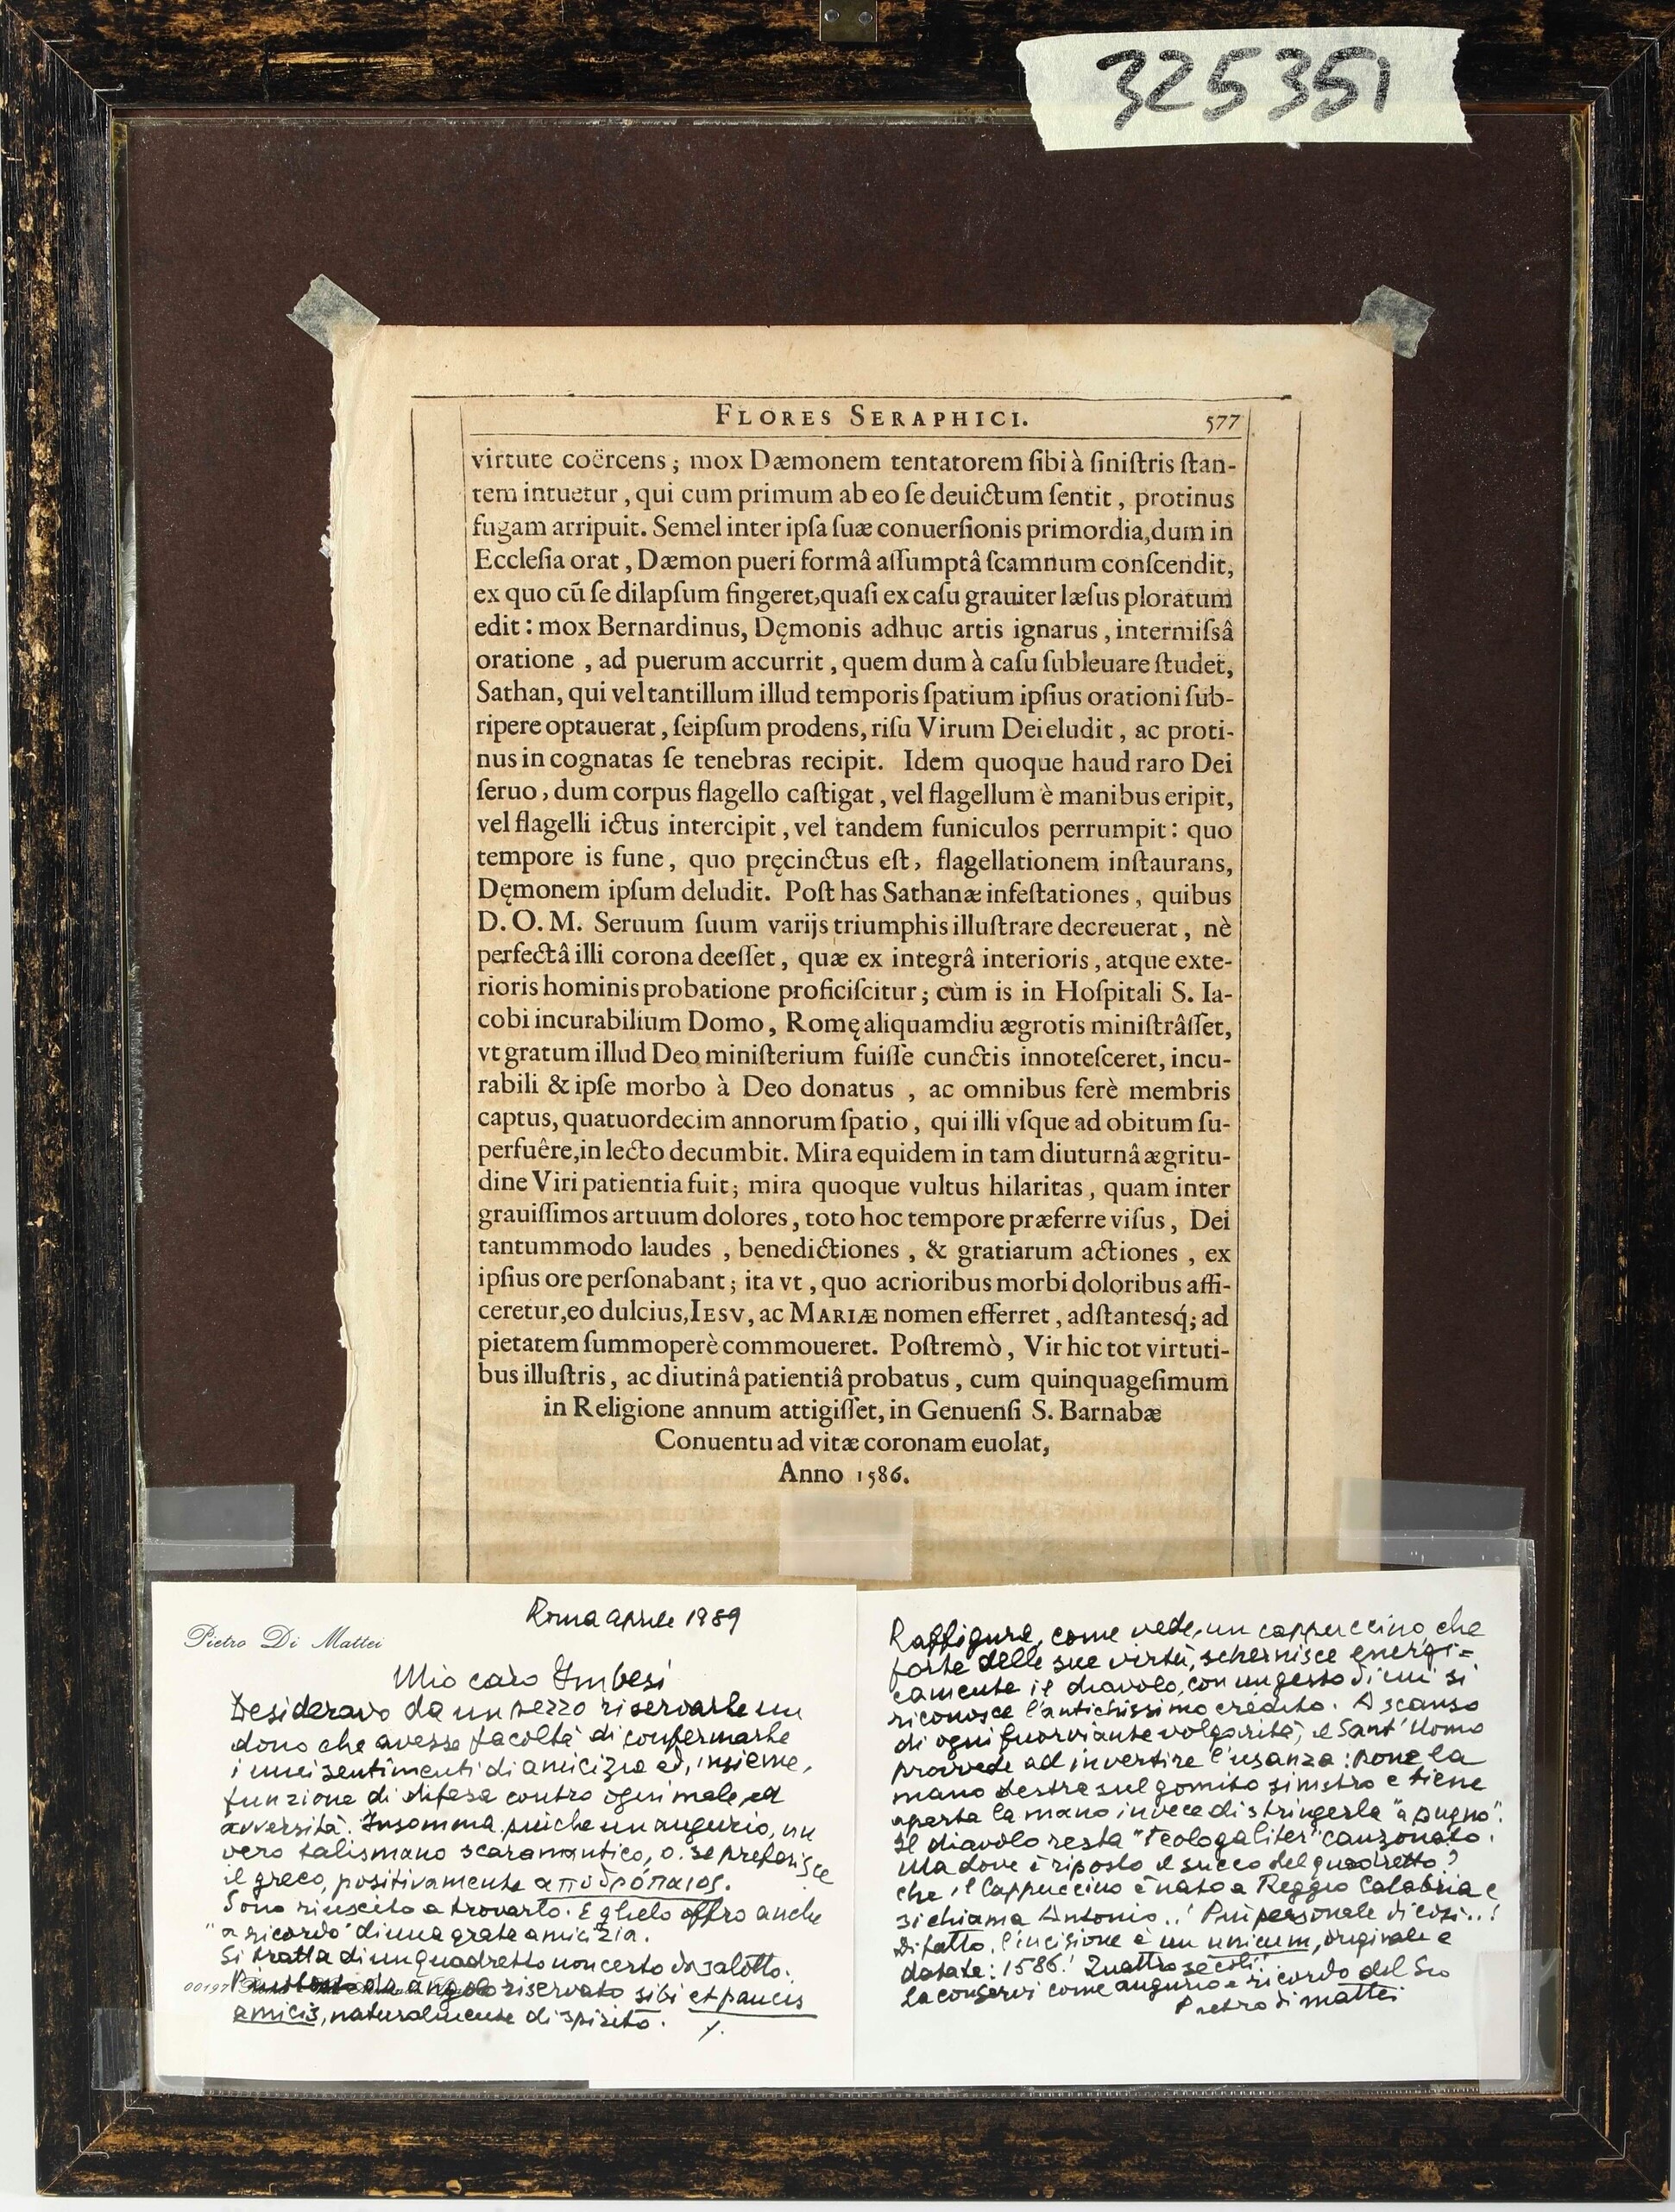 325351
FLORES SERAPHICI. 577
virtute coërcens ; mox Dæmonem tentatorem ſibi à ſiniſtris ſtan-
tem intuetur , qui cum primum ab eo ſe deuictum ſentit , protinus
fugam arripuit. Semel inter ipſa ſuæ conuerſionis primordia, dum in
Eccleſia orat , Dæmon pueri formâ aſſumptâ ſcamnum conſcendit,
ex quo cū ſe dilapſum fingeret, quaſi ex caſu grauiter læſus ploratum
edit : mox Bernardinus, Dęmonis adhuc artis ignarus , intermiſsâ
oratione , ad puerum accurrit , quem dum à caſu ſubleuare ſtudet,
Sathan, qui vel tantillum illud temporis ſpatium ipſius orationi ſub-
ripere optauerat , ſeipſum prodens, riſu Virum Dei eludit , ac proti-
nus in cognatas ſe tenebras recipit. Idem quoque haud raro Dei
ſeruo , dum corpus flagello caſtigat , vel flagellum è manibus eripit,
vel flagelli ictus intercipit , vel tandem funiculos perrumpit : quo
tempore is fune , quo pręcinctus eſt , flagellationem inſtaurans,
Dęmonem ipſum deludit. Poſt has Sathanæ infeſtationes , quibus
D. O. M. Seruum ſuum varijs triumphis illuſtrare decreuerat , nè
perfectâ illi corona deeſſet , quæ ex integrâ interioris , atque exte-
rioris hominis probatione proficiſcitur ; cùm is in Hoſpitali S. Ia-
cobi incurabilium Domo , Romę aliquamdiu ægrotis miniſtrâſſet,
vt gratum illud Deo miniſterium fuiſſe cunctis innoteſceret, incu-
rabili & ipſe morbo à Deo donatus , ac omnibus ferè membris
captus, quatuordecim annorum ſpatio , qui illi vſque ad obitum ſu-
perfuêre, in lecto decumbit. Mira equidem in tam diuturnâ ægritu-
dine Viri patientia fuit ; mira quoque vultus hilaritas , quam inter
grauiſſimos artuum dolores , toto hoc tempore præferre viſus , Dei
tantummodo laudes , benedictiones , & gratiarum actiones , ex
ipſius ore perſonabant ; ita vt , quo acrioribus morbi doloribus affi-
ceretur, eo dulcius, IESV, ac MARIÆ nomen efferret , adſtantesq́; ad
pietatem ſummoperè commoueret. Poſtremò , Vir hic tot virtuti-
bus illuſtris , ac diutinâ patientiâ probatus , cum quinquageſimum
in Religione annum attigiſſet, in Genuenſi S. Barnabæ
Conuentu ad vitæ coronam euolat,
Anno 1586.
Roma aprile 1989
Pietro Di Mattei
Mio caro Imbesi
Desideravo da un pezzo riservarle un
dono che avesse facoltà di confermarle
i miei sentimenti di amicizia ed, insieme,
funzione di difesa contro ogni male ed
avversità. Insomma più che un augurio, un
vero talismano scaramantico, o se preferisce
il greco, positivamente αποτρόπαιος.
Sono riuscito a trovarlo. E glielo offro anche
"a ricordo" di una grata amicizia.
Si tratta di un quadretto non certo da salotto.
00197 angolo riservato sibi et paucis
amicis, naturalmente di spirito. ./.
Raffigura, come vede, un cappuccino che
forte delle sue virtù, schernisce energi=
camente il diavolo, con un gesto di cui si
riconosce l'antichissimo credito. A scanso
di ogni fuorviante volgarità, il Sant'Uomo
provvede ad invertire l'usanza: pone la
mano destra sul gomito sinistro e tiene
aperta la mano invece di stringerla "a pugno".
Il diavolo resta "teologaliter" canzonato.
Ma dove è riposto il succo del quadretto?
Che il Cappuccino è nato a Reggio Calabria e
si chiama Antonio..! Più personale di così..!
Difatto, l'incisione è un unicum, originale e
datata: 1586! Quattro secoli!
La conservi come augurio e ricordo del Suo
Pietro di Mattei